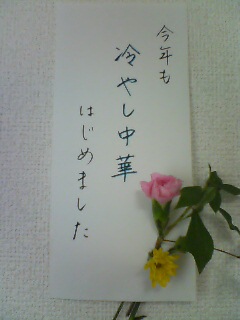 今年も
冷やし中華
はじめました